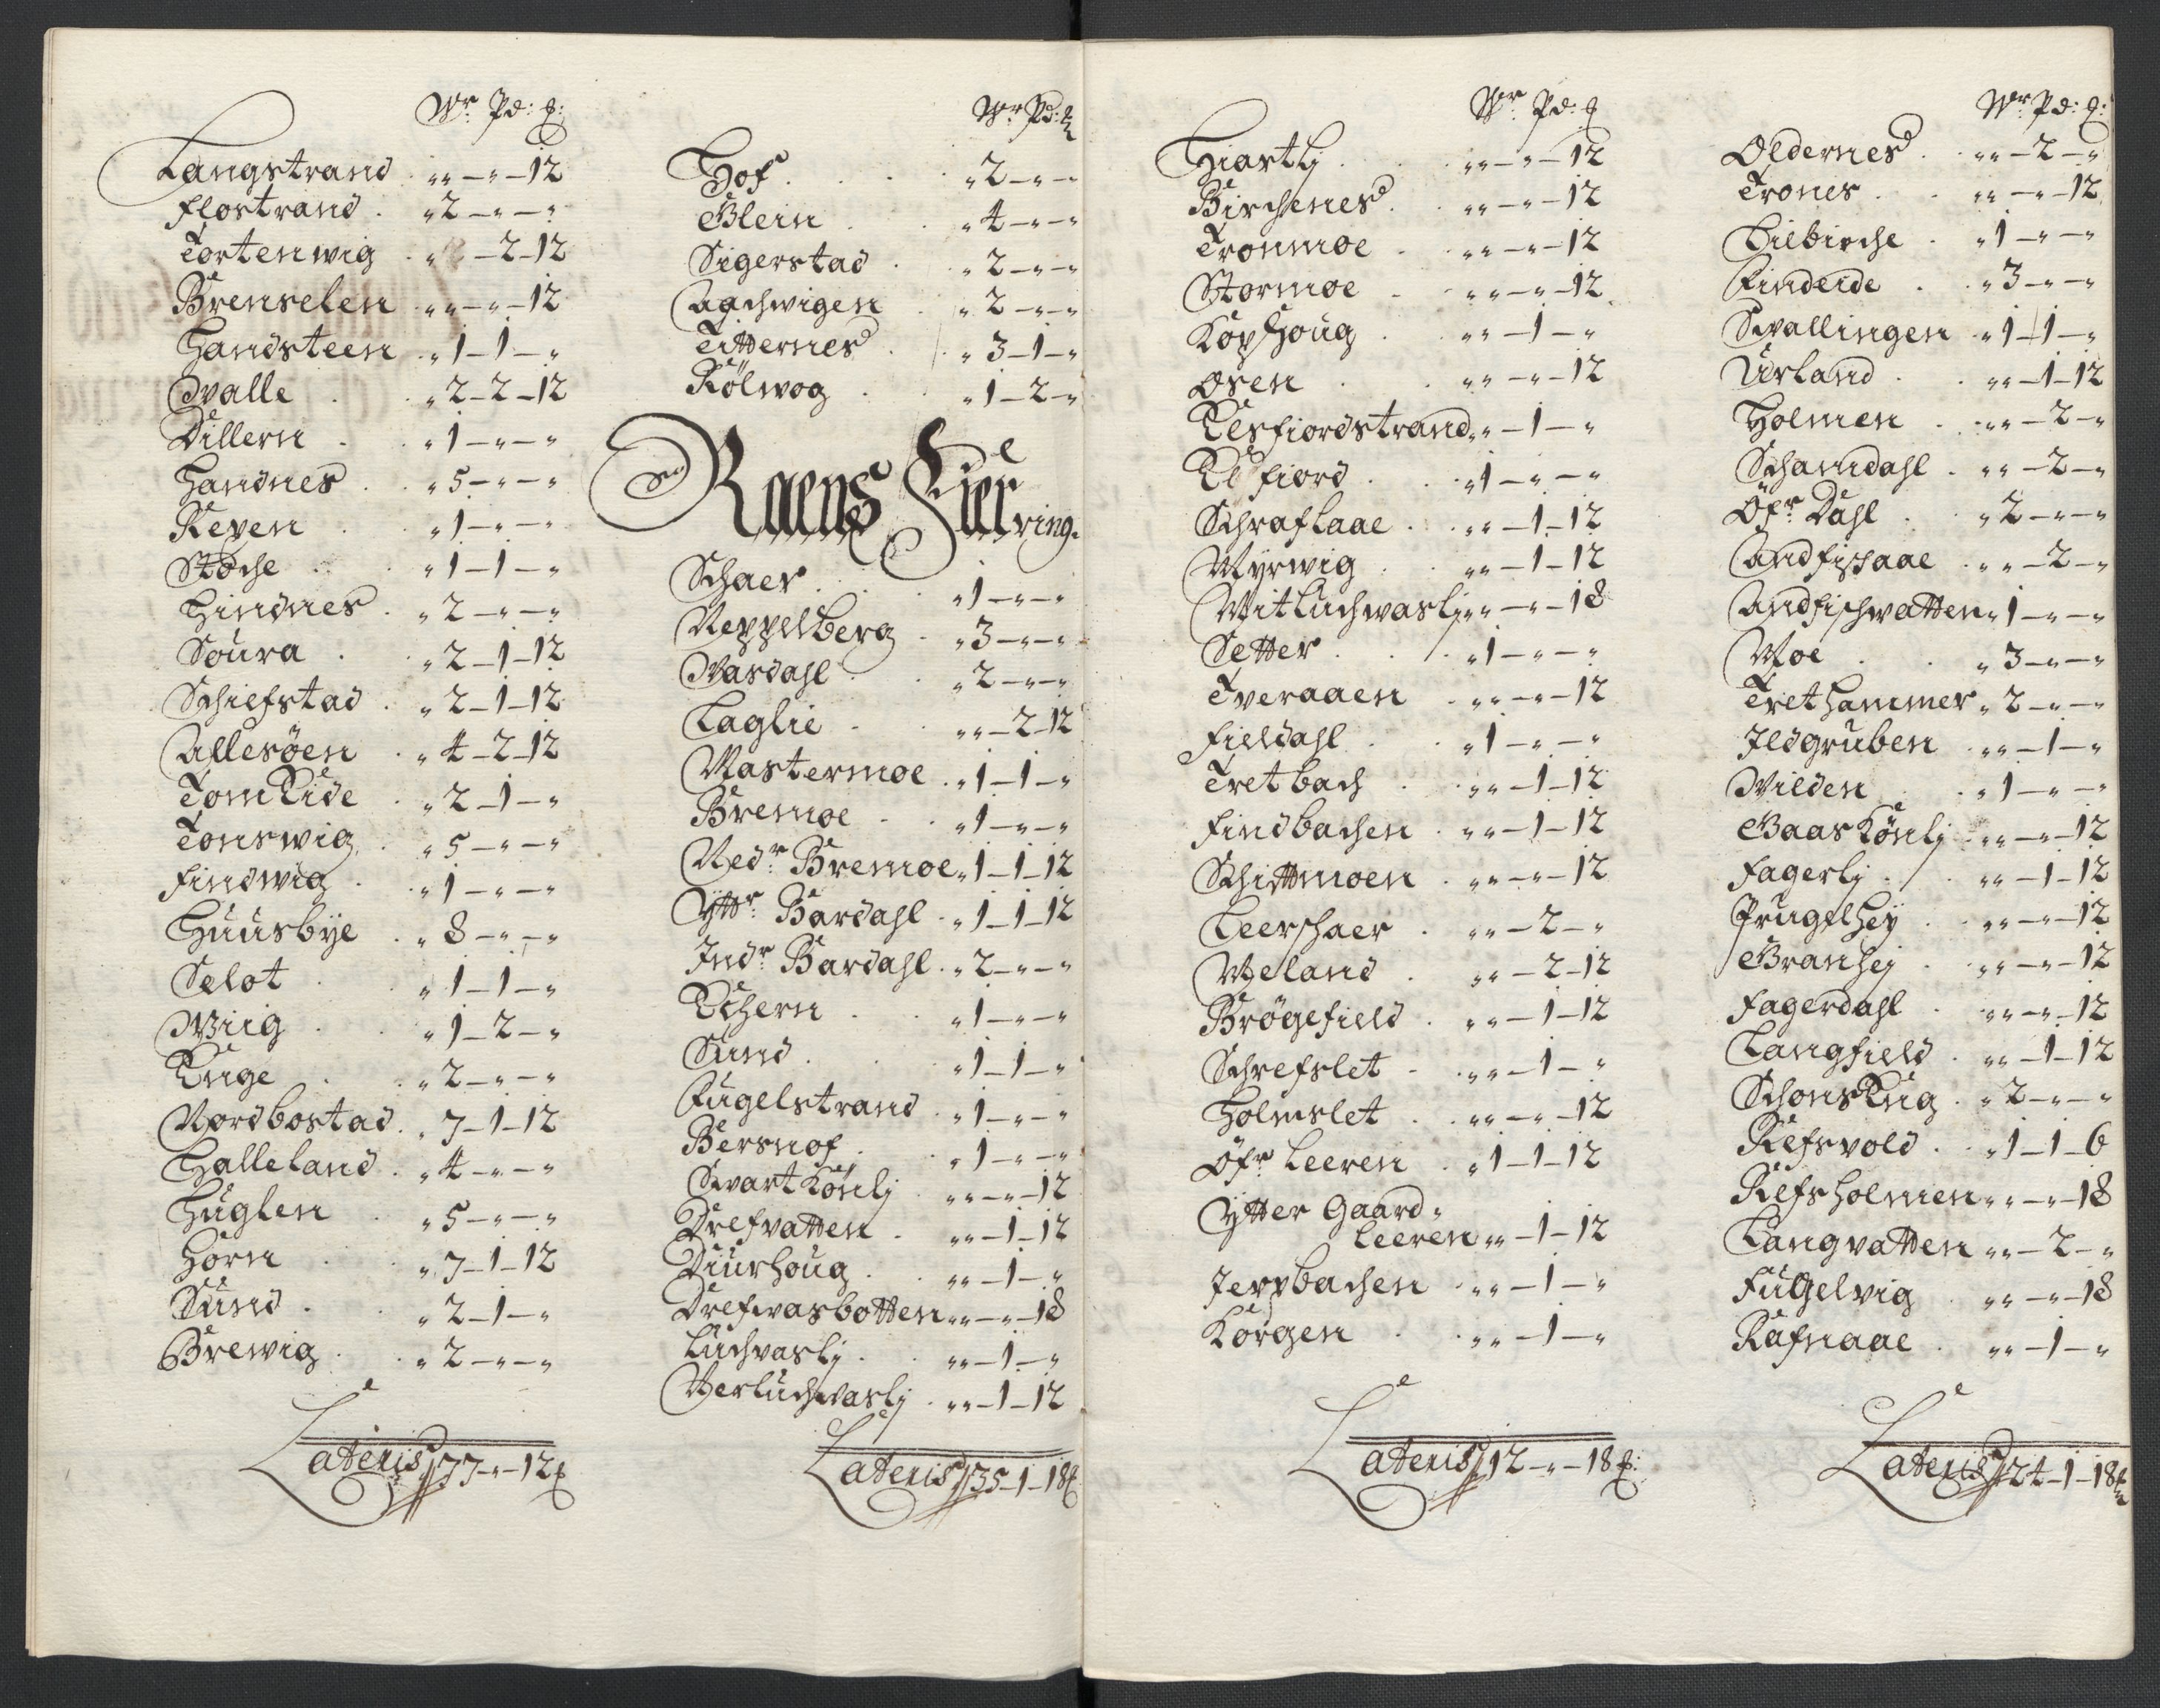 Wr Pd: ℔:
Langstrand „„ — „ — 12
Flostrand „ 2 — „ — „
Tortenwig „ — 2 — 12
Brenselen „„ — „ — 12
Handsteen „ 1 — 1 — „
Walle „ 2 — 2 — 12
Dillern „ 1 — „ — „
Handnes „ 5 — „ — „
Reven „ 1 — „ — „
Stoche „ 1 — 1 — „
Hindnes „ 2 — „ — „
Soura „ 2 — 1 — 12
Schiefstad „ 2 — 1 — 12
Allesöen „ 4 — 2 — 12
Tom Eide „ 2 — 1 — „
Tonswig „ 5 — „ — „
Findwig „ 1 — „ — „
Huusbye „ 8 — „ — „
Selot „ 1 — 1 — „
Wiig „ 1 — 2 — „
Enge „ 2 — „ — „
Nordbostad „ 7 — 1 — 12
Halleland „ 4 — „ — „
Huglen „ 5 — „ — „
Horn „ 7 — 1 — 12
Sund „ 2 — 1 — „
Brewig „ 2 — „ — „
Lateris 77 — „ — 12 ℔
Wr Pd: ℔
Hof „ 2 — „ — „
Blein „ 4 — „ — „
Sigerstad „ 2 — „ — „
Aachwigen „ 2 — „ — „
Titternes „ 3 — 1 — „
Kölwog „ 1 — 2 — „
Raens Fierring.
Schaer „ 1 — „ — „
Neppelberg „ 3 — „ — „
Wasdahl „ 2 — „ — „
Laglie „„ — 2 — 12
Mastermoe „ 1 — 1 — „
Bremoe „ 1 — „ — „
Nedr Bremoe „ 1 — 1 — 12
Yttr Bardahl „ 1 — 1 — 12
Indr Bardahl „ 2 — „ — „
Echern „ 1 — „ — „
Sund „ 1 — 1 — „
Fugelstrand „ 1 — „ — „
Bersnof „ 1 — „ — „
Svart Könlj „„ — „ — 12
Drefvatten „„ — 1 — 12
Diurhoug „„ — 1 — „
Drefwasbotten „„ — „ — 18
Luchvaslj „„ — 1 — „
Verluchwaslj „„ — 1 — 12
Lateris 35 — 1 — 18 ℔
Wr Pd: ℔
Hiartlj „„ — „ — 12
Birchenes „„ — „ — 12
Tronmoe „„ — „ — 12
Stormoe „„ — „ — 12
Kopshoug „„ — 1 — „
Osen „„ — „ — 12
Elsfiordstrand „„ — 1 — „
Elsfiord „ 1 — „ — „
Schraflaae „„ — 1 — 12
Myrwig „„ — 1 — 12
Mitluchwaslj „„ — „ — 18
Setter „ 1 — „ — „
Tveraaen „„ — „ — 12
Fieldahl „ 1 — „ — „
Tretbach „„ — 1 — 12
Findbachen „„ — 1 — 12
Schittmoen „„ — „ — 12
Leerschaer „„ — 2 — „
Meland „„ — 2 — 12
Brögefield „„ — 1 — 12
Schrefslet „„ — 1 — „
Holmslet „„ — „ — 12
Öfr Leeren „ 1 — 1 — 12
Ytter Gaard„
Leeren „„ — 1 — 12
Jeppbachen „„ — 1 — „
Korgen „„ — 1 — „
Lateris 12 — „ — 18 ℔:
Wr Pd: ℔:
Oldernes „„ — 2 — „
Trones „„ — „ — 12
Lilbirche „ 1 — „ — „
Findeide „ 3 — „ — „
Svallingen „ 1 — 1 — „
Urland „„ — 1 — 12
Holmen „„ — 2 — „
Schamdahl „„ — 2 — „
Öfr Dahl „ 2 — „ — „
Andfischaae „„ — 2 — „
Andfischwatten „ 1 — „ — „
Moe „ 3 — „ — „
Tret Hammer „ 2 — „ — „
Ildgruben „„ — 1 — „
Wilden „ 1 — „ — „
Baas Könlj „„ — „ — 12
Fagerlj „„ — 1 — 12
Prugelhej „„ — „ — 12
Granhej „„ — „ — 12
Fagerdahl „„ — „ — 12
Langfield „„ — 1 — 12
Schons Eng „ 2 — „ — „
Refsvold „ 1 — 1 — 6
Refsholmen „„ — „ — 18
Langvatten „„ — 2 — „
Fugelvig „„ — „ — 18
Rafnaae „„ — 1 — „
Lateris 24 — 1 — 18 ℔